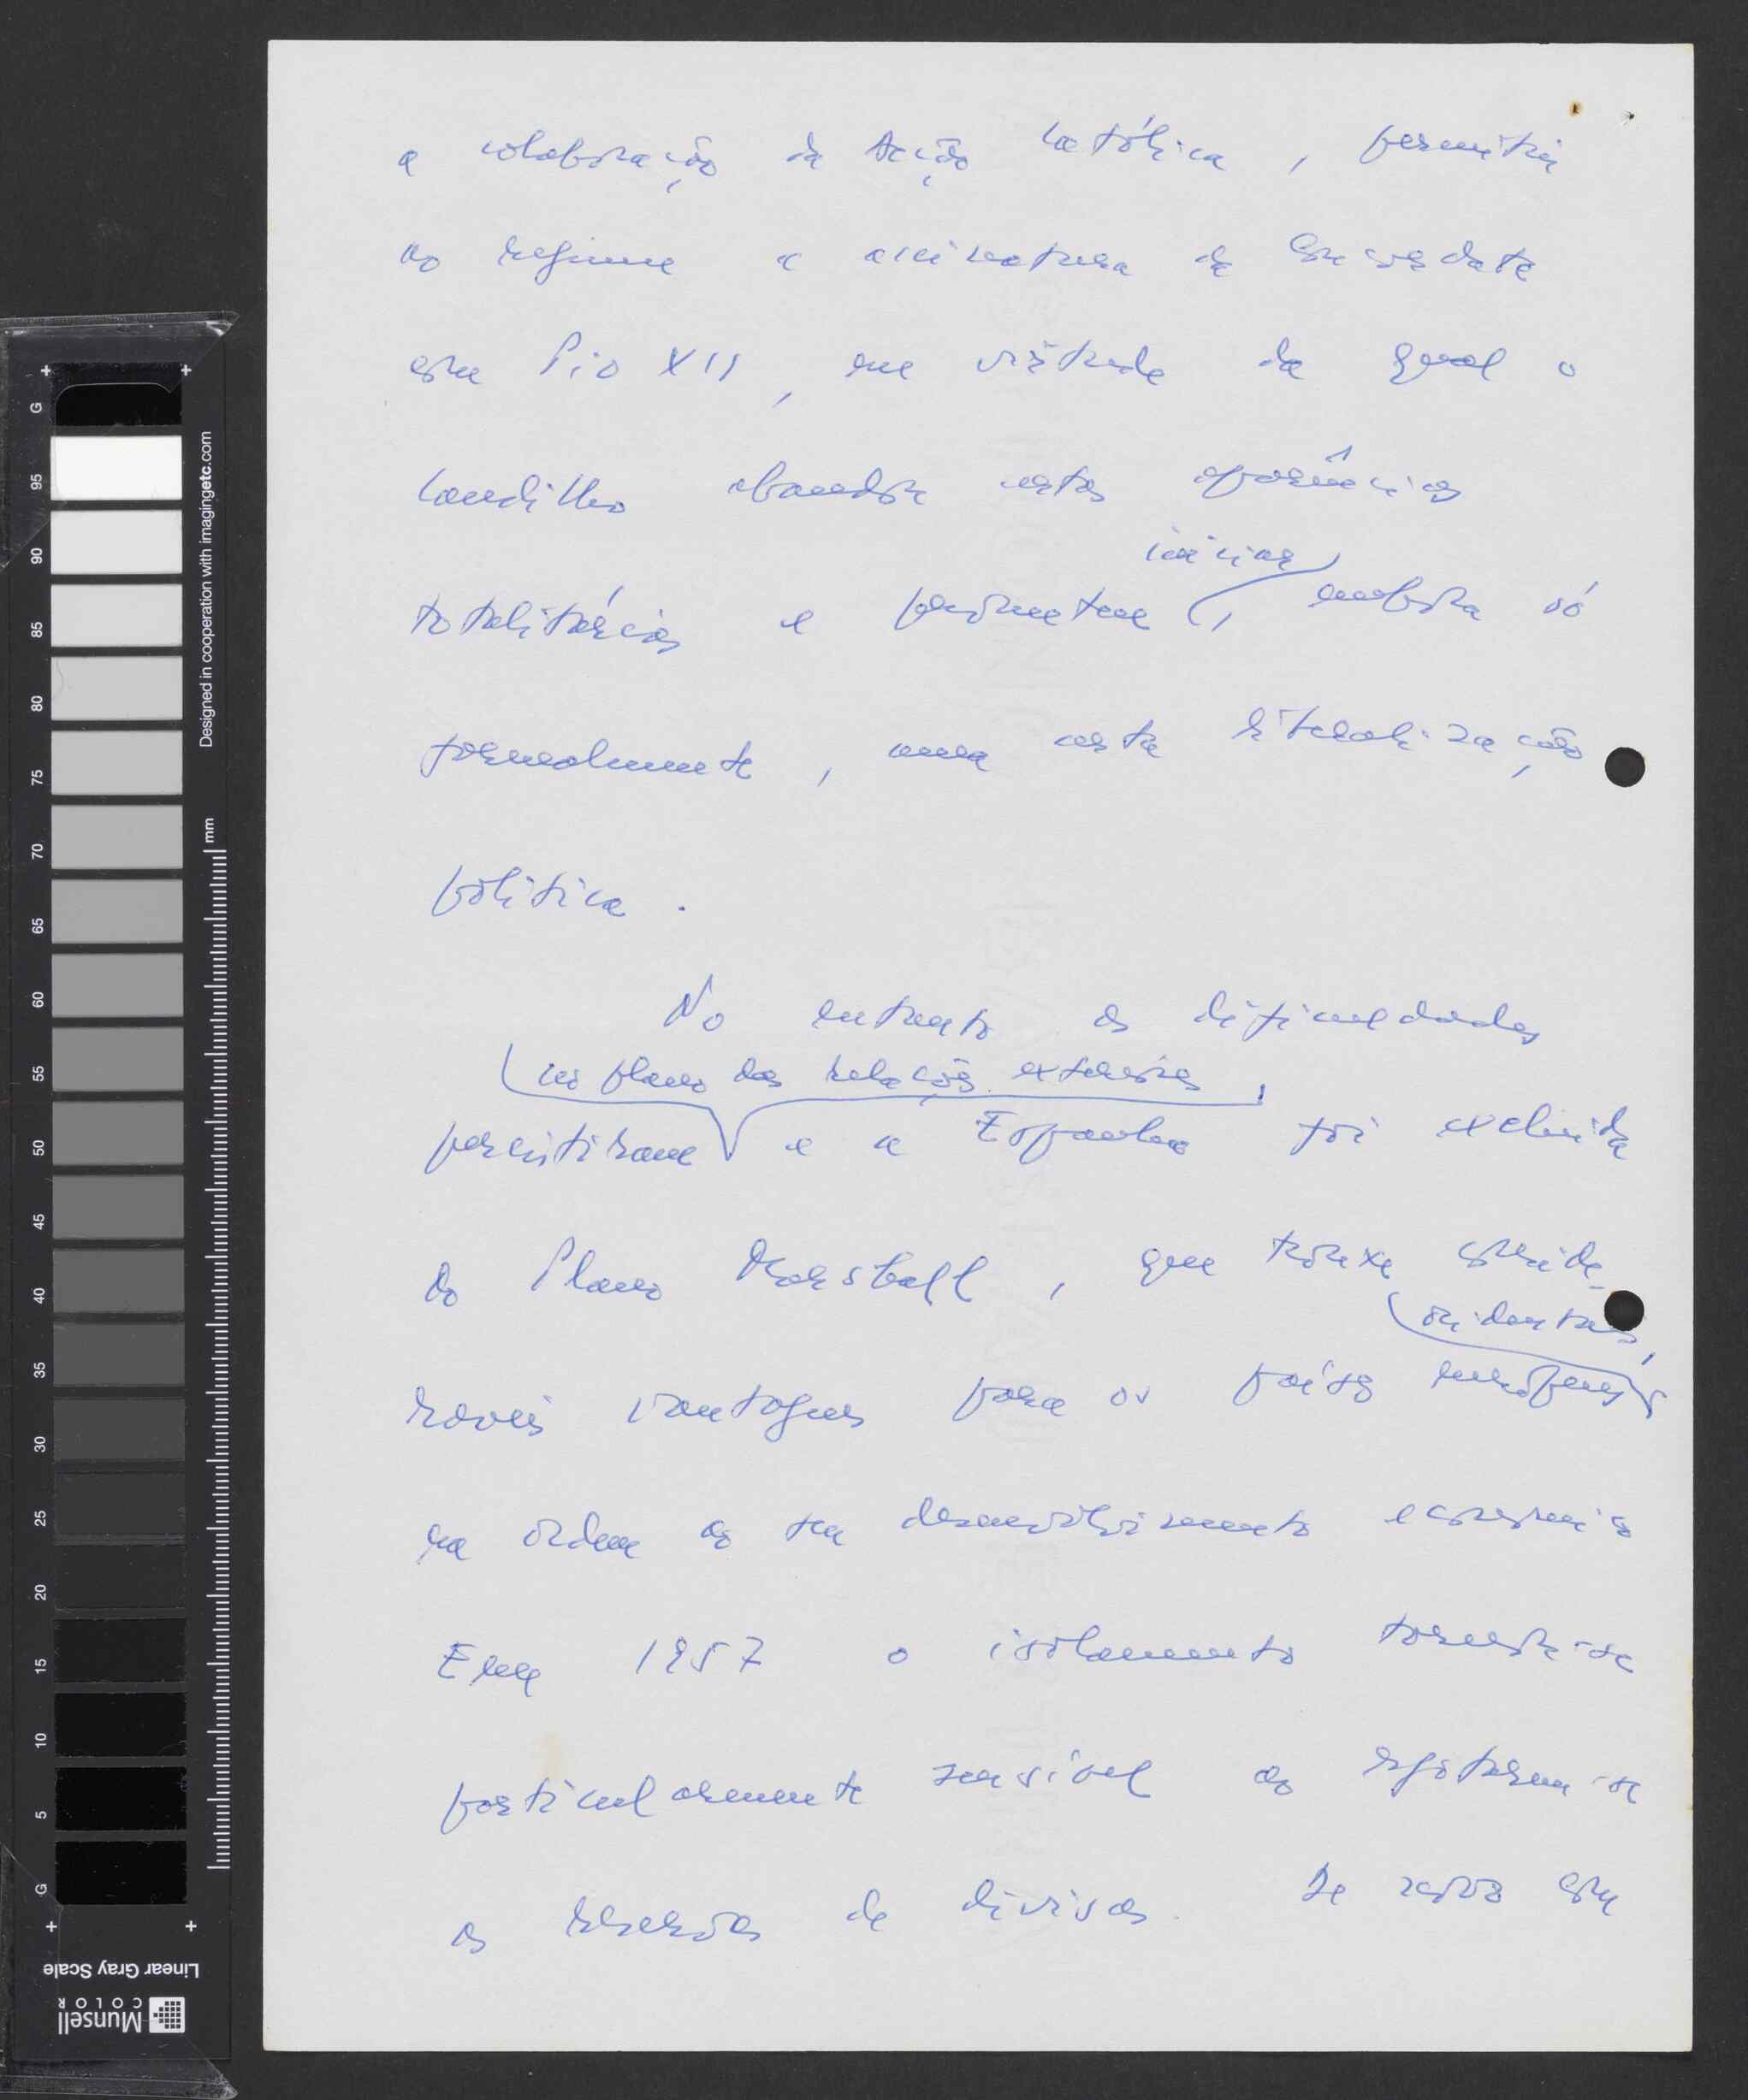 a colaboração da Acção Católica, permitiu
ao regime a assinatura da Concordata
com Pio XII, em virtude da qual o
Caudilho abandona certas aparências
totalitárias e promete iniciar, embora só
formalmente, uma certa liberalização
política.
No entanto as dificuldades
no plano das relações exteriores,
persistiram e a Espanha foi excluída
do Plano Marshall, que trouxe conside-
ocidentais,
ráveis vantagens para os países europeus
na ordem do seu desenvolvimento económico
Em 1957 o isolamento tornou-se
particularmente sensível ao esgotarem-se
as reservas de divisas. De novo com
G
95
90
85
80
75
70
65
60
55
50
45
40
35
30
25
20
15
10
5
G
Designed in cooperation with imagingetc.com
mm
Linear Gray Scale
Munsell
COLOR